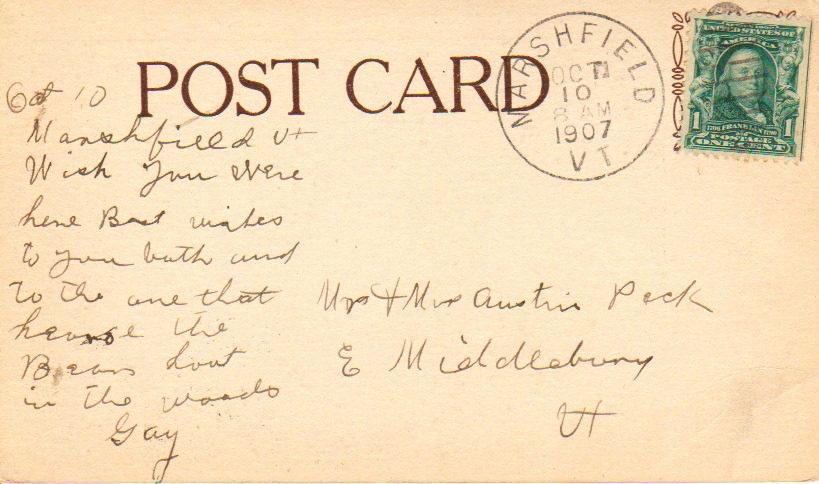 POST CARD
MARSHFIELD
OCT
10
8 AM
1907
VT.
UNITED STATES OF
AMERICA
1 1
POSTAGE
ONE CENT
Oct 10
Marshfield Vt
Wish You Were
here Best wishes
to you both and
to the one that
the
Bears hoot
in the woods
Gay
Mr & Mrs Austin Peck
E Middlebury
Vt